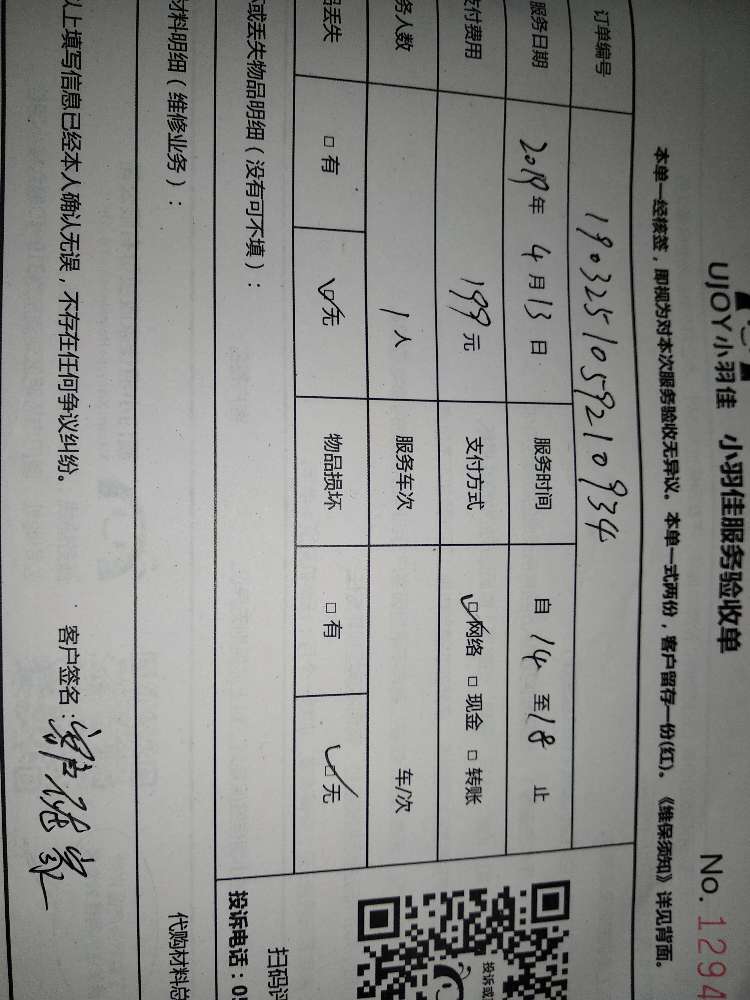 UJOY小羽佳 小羽佳服务验收单
No. 1294
本单一经核签，即视为对本次服务验收无异议。本单一式两份，客户留存一份(红)。《维保须知》详见背面。
订单编号 1903251059210934
服务日期 2019年 4月13日 服务时间 自 14 至18 止
支付费用 199元 支付方式 □网络 □现金 □转账
务人数 1人 服务车次 车/次
品丢失 □有 □无 物品损坏 □有 □无
或丢失物品明细（没有可不填）：
材料明细（维修业务）：
代购材料总
以上填写信息已经本人确认无误，不存在任何争议纠纷。 客户签名：客户
投诉或
扫码评
投诉电话：05